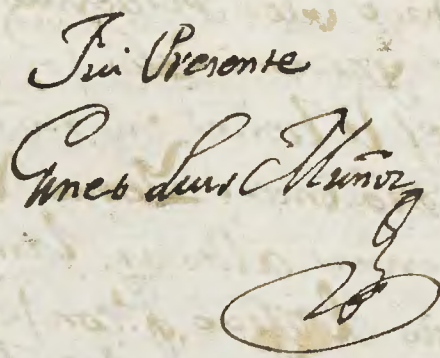 Fui Presente
Gines Luis Muñoz